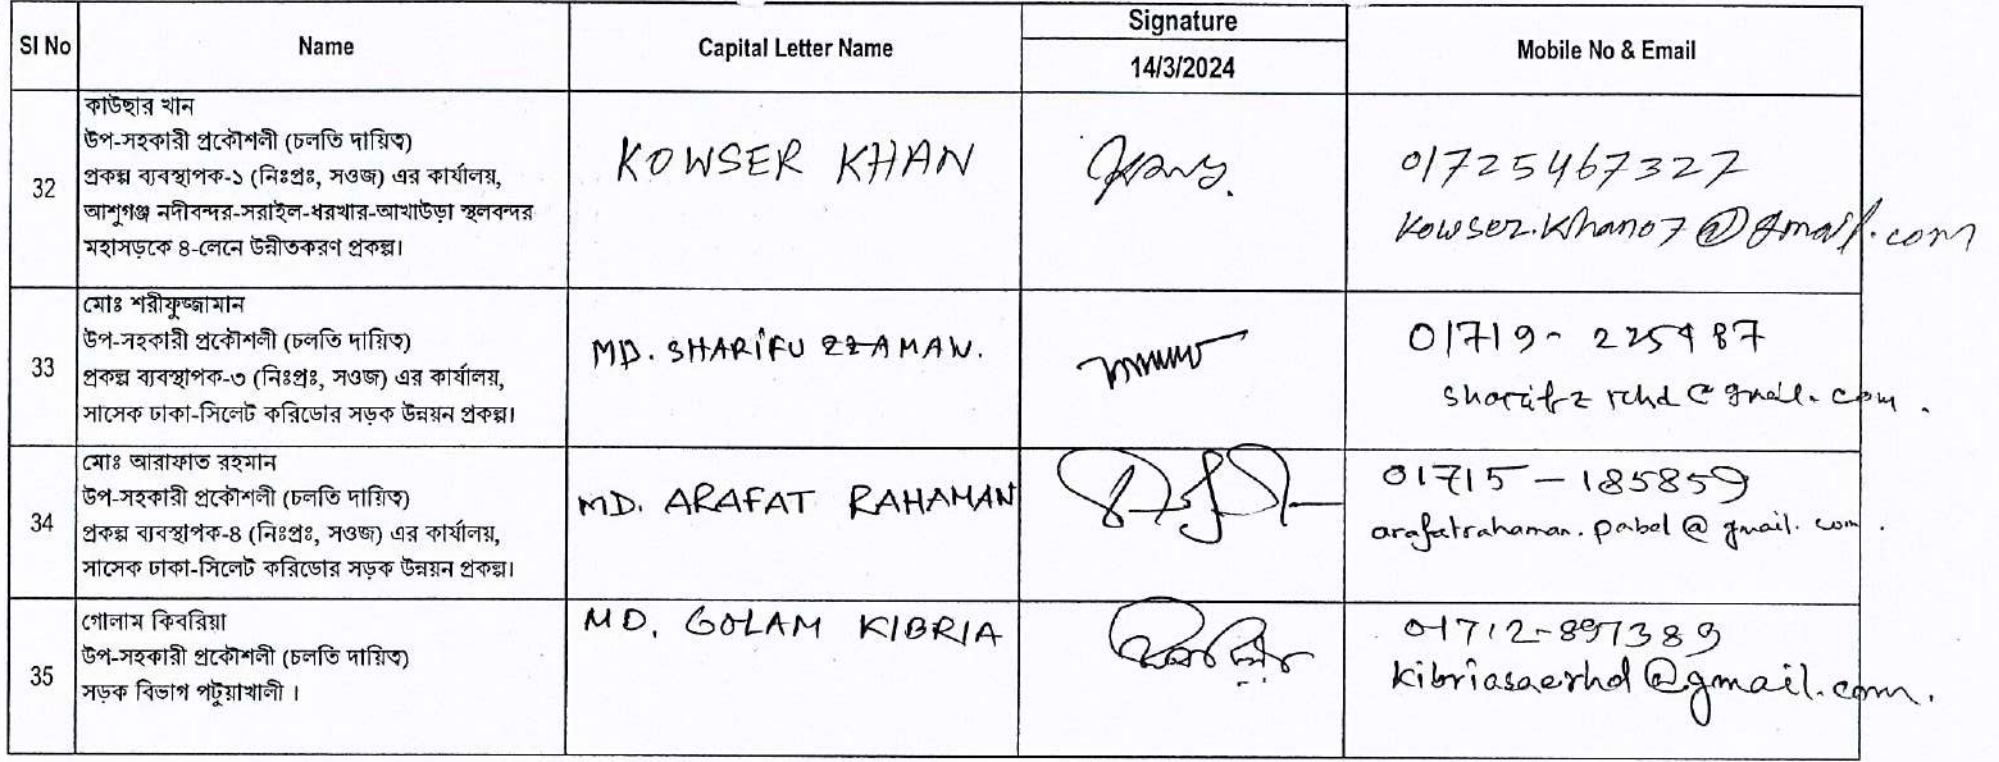 SI No Name Capital Letter Name Signature Mobile No & Email
14/3/2024
32
কাউছার খান
উপ-সহকারী প্রকৌশলী (চলতি দায়িত্ব)
প্রকল্প ব্যবস্থাপক-১ (নিঃপ্রঃ, সওজ) এর কার্যালয়,
আশুগঞ্জ নদীবন্দর-সরাইল-ধরখার-আখাউড়া স্থলবন্দর
মহাসড়কে ৪-লেনে উন্নীতকরণ প্রকল্প।
KOWSER KHAN
01725467327
kowser.khan07@gmail.com
33
মোঃ শরীফুজ্জামান
উপ-সহকারী প্রকৌশলী (চলতি দায়িত্ব)
প্রকল্প ব্যবস্থাপক-৩ (নিঃপ্রঃ, সওজ) এর কার্যালয়,
সাসেক ঢাকা-সিলেট করিডোর সড়ক উন্নয়ন প্রকল্প।
MD. SHARIFUZZAMAN.
01719-225487
sharifz rchd@gmail.com.
34
মোঃ আরাফাত রহমান
উপ-সহকারী প্রকৌশলী (চলতি দায়িত্ব)
প্রকল্প ব্যবস্থাপক-৪ (নিঃপ্রঃ, সওজ) এর কার্যালয়,
সাসেক ঢাকা-সিলেট করিডোর সড়ক উন্নয়ন প্রকল্প।
MD. ARAFAT RAHAMAN
01715-185859
arafatrahaman.pabel@gmail.com.
35
গোলাম কিবরিয়া
উপ-সহকারী প্রকৌশলী (চলতি দায়িত্ব)
সড়ক বিভাগ পটুয়াখালী ।
MD. GOLAM KIBRIA
01712-897389
kibriasaerhd@gmail.com.